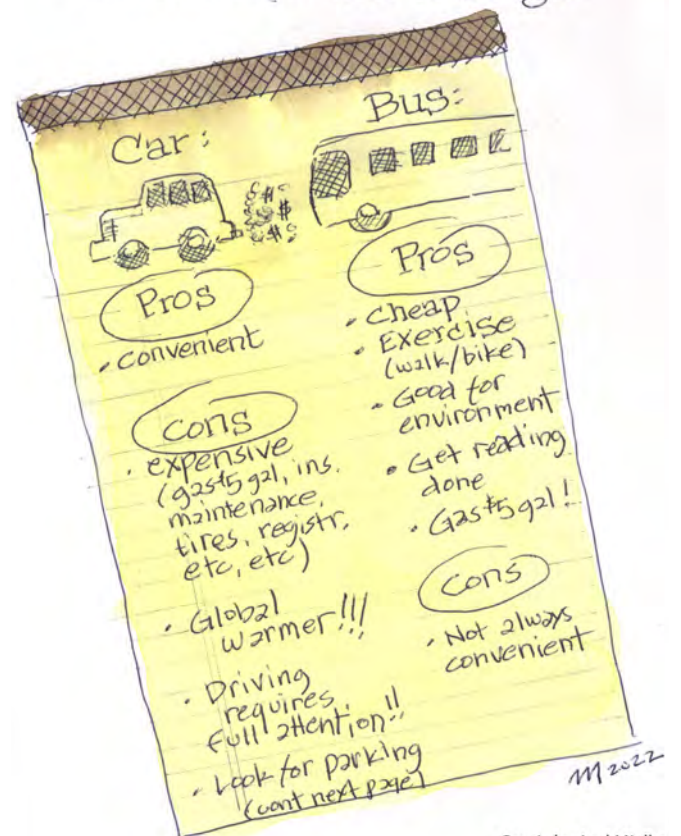 Car:
Pros
• convenient
cons
• expensive
(gas $5 gal, ins.
maintenance,
tires, registr,
etc, etc)
• Global
warmer!!!
• Driving
requires
full attention!!
• Look for parking
(cont next page)
Bus:
Pros
• cheap
• Exercise
(walk/bike)
• Good for
environment
• Get reading
done
• Gas $5 gal!
cons
• Not always
convenient
$
$
$
2022